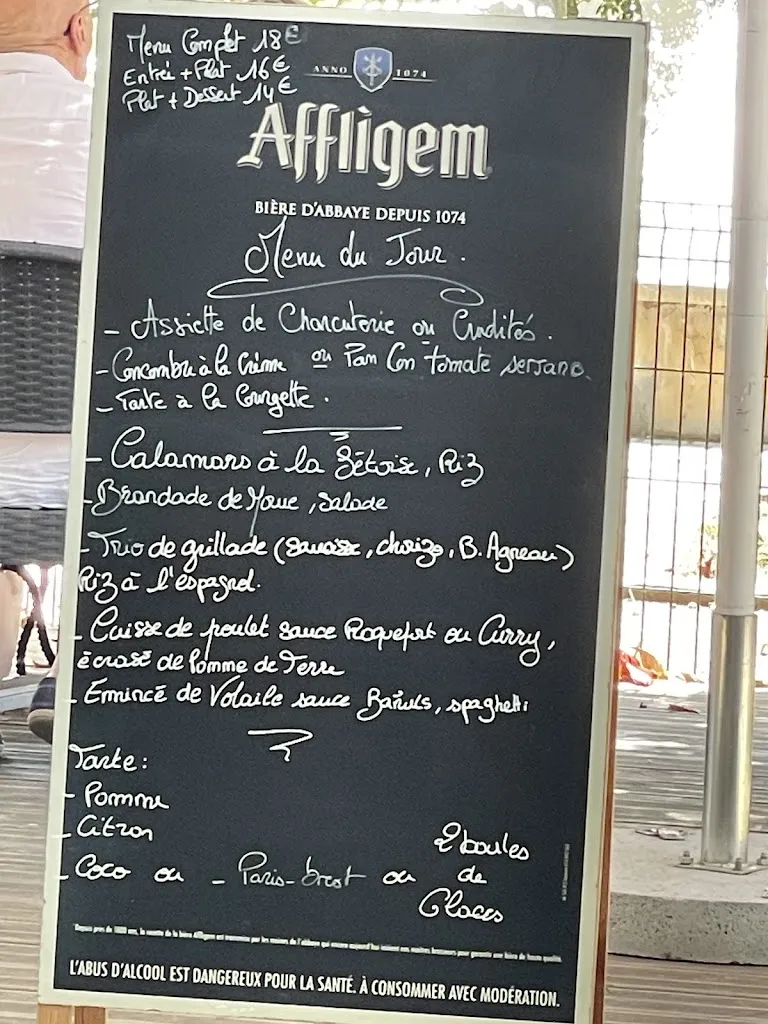 Menu Complet 18€
Entrée + Plat 16€
Plat + Dessert 14€
ANNO 1074
Affligem
BIÈRE D'ABBAYE DEPUIS 1074
Menu du Jour.
- Assiette de Charcuterie ou Crudités.
- Concombre à la Crème ou Pan Con tomate serrano.
- Tarte à la Courgette.
- Calamars à la Sétoise, Riz
- Brandade de Morue, Salade
- Trio de grillade (saucisse, chorizo, B. Agneau)
Riz à l'espagnol.
- Cuisse de poulet sauce Roquefort ou Curry,
écrasé de Pomme de Terre
- Emincé de Volaile sauce Bañuls, spaghetti
Tarte:
- Pomme
- Citron
- Coco ou - Paris-brest ou 2 boules de Glaces
L'ABUS D'ALCOOL EST DANGEREUX POUR LA SANTÉ. À CONSOMMER AVEC MODÉRATION.